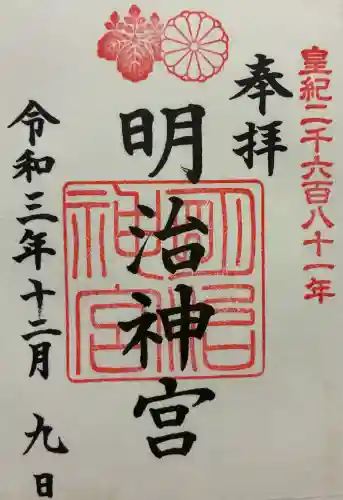 皇紀二千六百八十一年
奉拝
明治神宮
明治神宮
令和三年十二月 九日